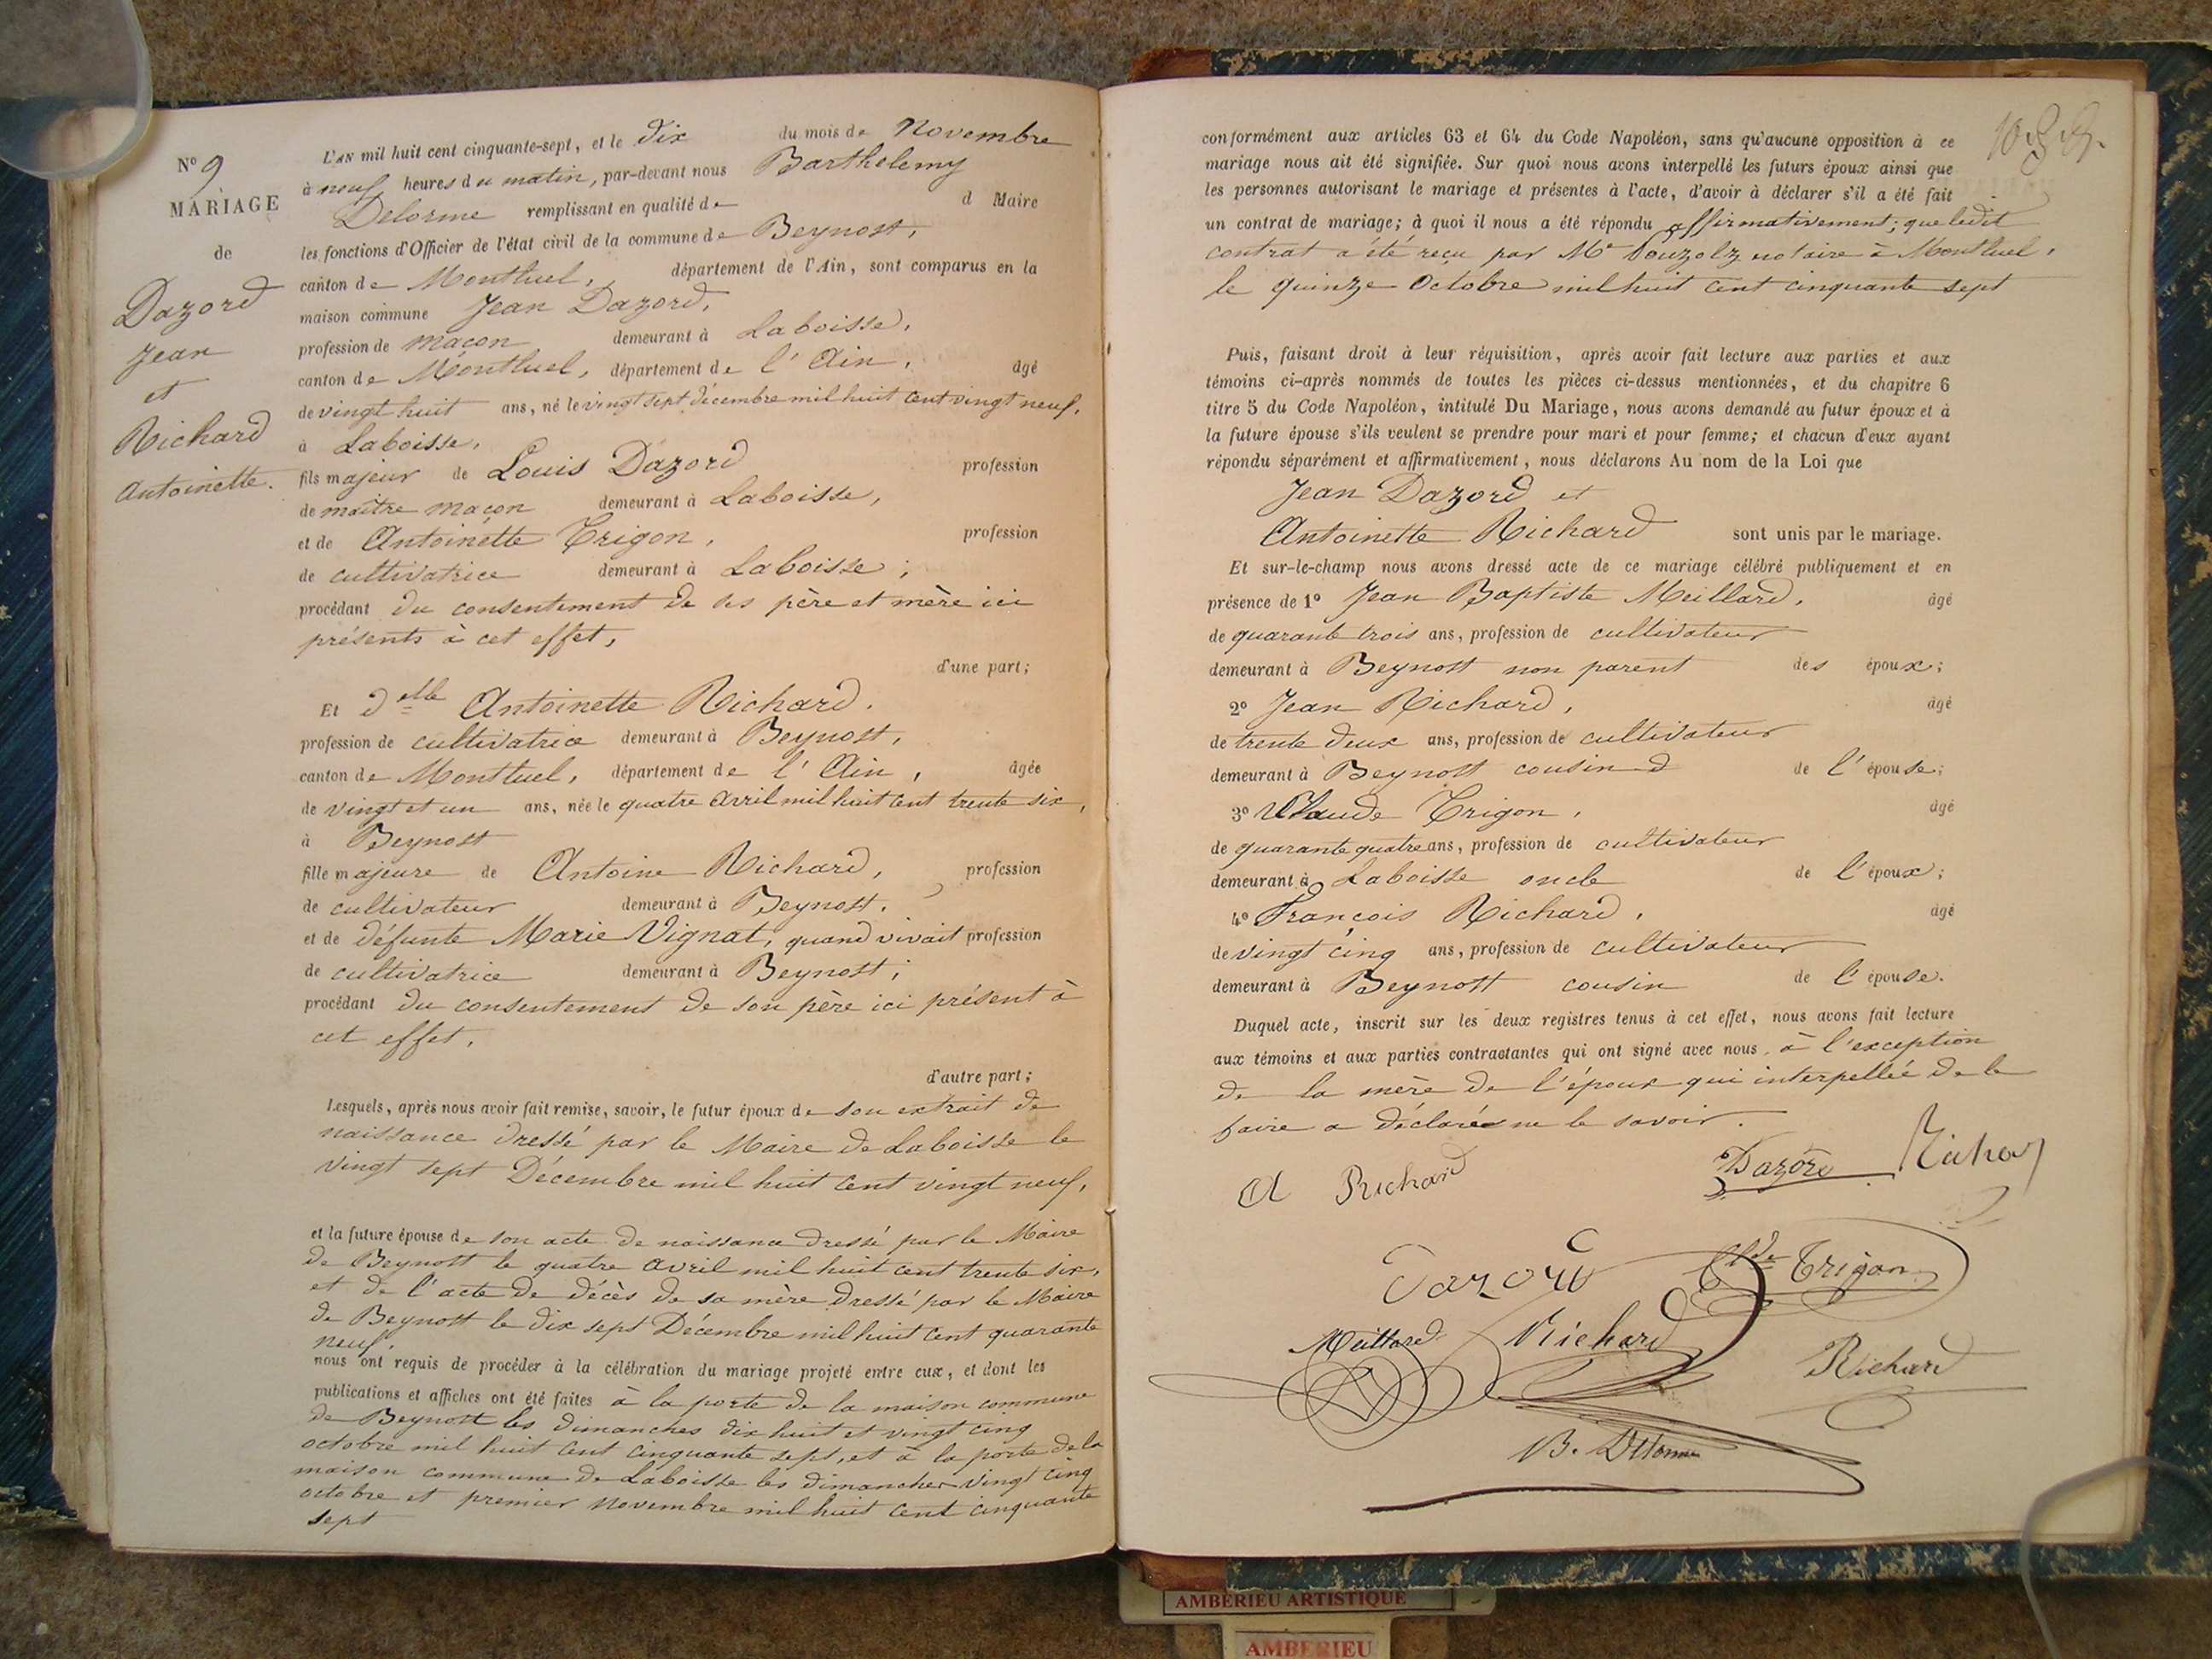 Nº 9
MARIAGE
de
Dazord
Jean
et
Richard
Antoinette.
L'AN mil huit cent cinquante-sept, et le dix du mois de Novembre
à neuf heures du matin, par-devant nous Barthelemy
Delorme remplissant en qualité de d Maire
les fonctions d'Officier de l'état civil de la commune de Beynost,
canton de Montluel, département de l'Ain, sont comparus en la
maison commune Jean Dazord,
profession de maçon demeurant à Laboisse,
canton de Montluel, département de l'Ain, âgé
de vingt huit ans, né le vingt sept décembre mil huit cent vingt neuf,
à Laboisse,
fils majeur de Louis Dazord profession
de maître maçon demeurant à Laboisse,
et de Antoinette Trigon, profession
de cultivatrice demeurant à Laboisse;
procédant du consentement de ses père et mère ici
présents à cet effet,
d'une part;
Et dlle Antoinette Richard,
profession de cultivatrice demeurant à Beynost,
canton de Montluel, département de l'Ain, âgée
de vingt et un ans, née le quatre avril mil huit cent trente six,
à Beynost
fille majeure de Antoine Richard, profession
de cultivateur demeurant à Beynost,
et de défunte Marie Vignat, quand vivait profession
de cultivatrice demeurant à Beynost;
procédant du consentement de son père ici présent à
cet effet,
d'autre part;
Lesquels, après nous avoir fait remise, savoir, le futur époux de son extrait de
naissance dressé par le Maire de Laboisse le
vingt sept Décembre mil huit cent vingt neuf,
et la future épouse de son acte de naissance dressé par le Maire
de Beynost le quatre avril mil huit cent trente six,
et de l'acte de décès de sa mère dressé par le Maire
de Beynost le dix sept Décembre mil huit cent quarante
neuf,
nous ont requis de procéder à la célébration du mariage projeté entre eux, et dont les
publications et affiches ont été faites à la porte de la maison commune
de Beynost les dimanches dix huit et vingt cinq
octobre mil huit cent cinquante sept, et à la porte de la
maison commune de Laboisse les dimanches vingt cinq
octobre et premier novembre mil huit cent cinquante
sept
conformément aux articles 63 et 64 du Code Napoléon, sans qu'aucune opposition à ce
mariage nous ait été signifiée. Sur quoi nous avons interpellé les futurs époux ainsi que
les personnes autorisant le mariage et présentes à l'acte, d'avoir à déclarer s'il a été fait
un contrat de mariage; à quoi il nous a été répondu affirmativement; que ledit
contrat a été reçu par Me notaire à Montluel,
le quinze Octobre mil huit cent cinquante sept
Puis, faisant droit à leur réquisition, après avoir fait lecture aux parties et aux
témoins ci-après nommés de toutes les pièces ci-dessus mentionnées, et du chapitre 6
titre 5 du Code Napoléon, intitulé Du Mariage, nous avons demandé au futur époux et à
la future épouse s'ils veulent se prendre pour mari et pour femme; et chacun d'eux ayant
répondu séparément et affirmativement, nous déclarons Au nom de la Loi que
Jean Dazord et
Antoinette Richard sont unis par le mariage.
Et sur-le-champ nous avons dressé acte de ce mariage célébré publiquement et en
présence de 1º Jean Baptiste Meillard, âgé
de quarante trois ans, profession de cultivateur
demeurant à Beynost non parent des époux;
2º Jean Richard, âgé
de trente deux ans, profession de cultivateur
demeurant à Beynost cousin d de l'épouse;
3º Claude Trigon, âgé
de quarante quatre ans, profession de cultivateur
demeurant à Laboisse oncle de l'époux;
4º François Richard, âgé
de vingt cinq ans, profession de cultivateur
demeurant à Beynost cousin de l'épouse.
Duquel acte, inscrit sur les deux registres tenus à cet effet, nous avons fait lecture
aux témoins et aux parties contractantes qui ont signé avec nous, à l'exception
de la mère de l'époux qui interpellée de le
faire a déclaré ne le savoir.
A Richard
Dazord
Dazord
Clde Trigon
Meillard
Richard
Richard
B. Delorme
AMBERIEU ARTISTIQUE
AMBERIEU